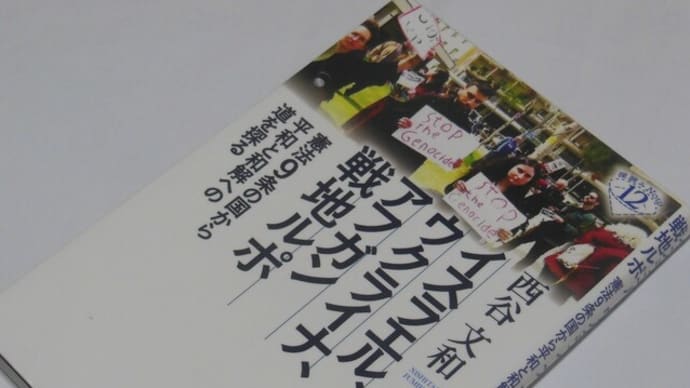 西谷 文和
イスラエル、
ウクライナ、
アフガン
戦地ルポ
憲法9条の国から
平和と和解への
道を探る
STOP
the
Genocide
STOP
the
Genocide
12
戦地ルポ
憲法9条の国から平和と和解